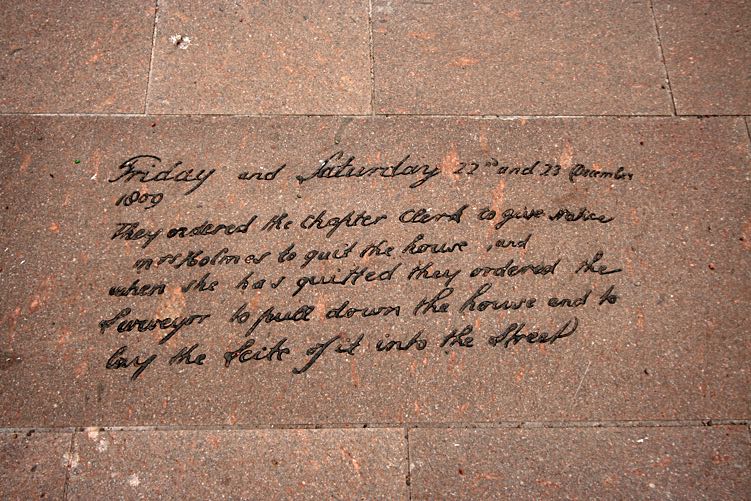 Friday and Saturday 22nd and 23 December
1809
They ordered the Chapter Clerk to give Notice
Mrs Holmes to quit the house , and
when she has quitted they ordered the
Surveyor to pull down the house and to
lay the Scite of it into the Street